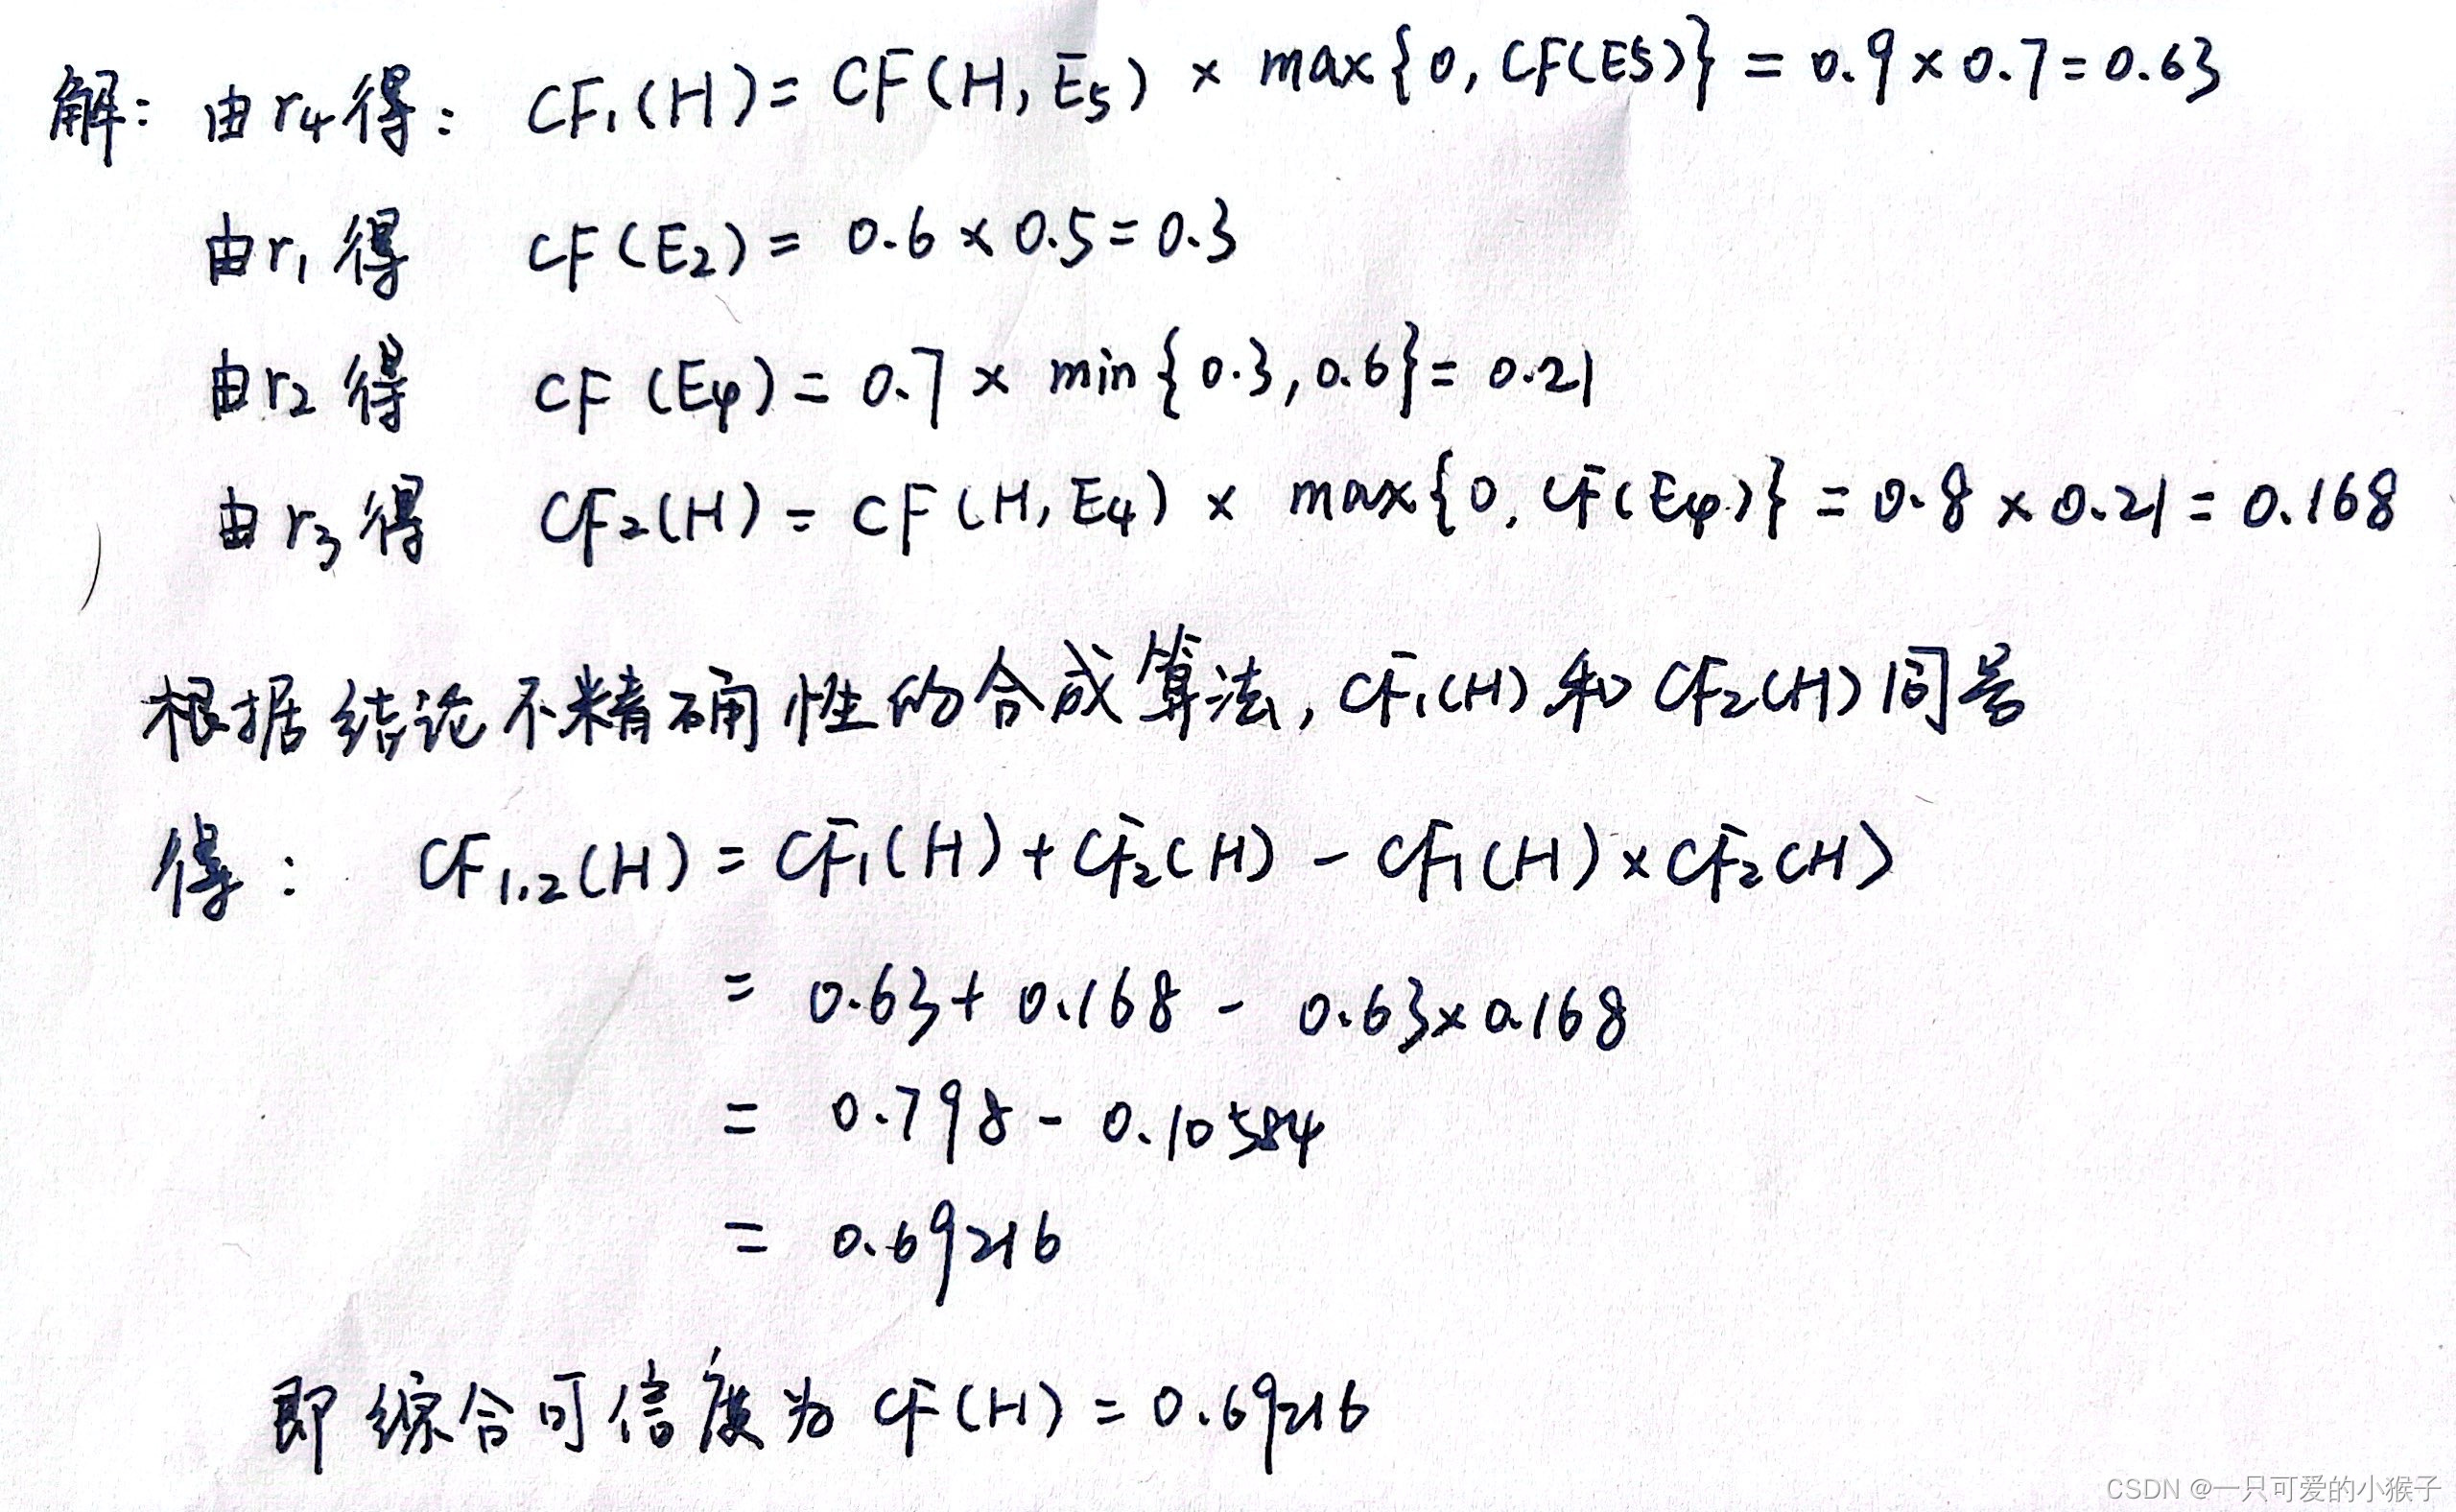 解: 由r₄得: CF₁(H)= CF(H, E₅) × max{0, CF(E5)} = 0.9×0.7=0.63
由r₁得 CF(E₂)= 0.6×0.5=0.3
由r₂得 CF(E₄)= 0.7× min{0.3,0.6}= 0.21
由r₃得 CF₂(H)= CF(H, E₄) × max{0, CF(E₄)} = 0.8×0.21=0.168
根据结论不精确性的合成算法, CF₁(H)和CF₂(H)同号
得: CF₁.₂(H)= CF₁(H)+CF₂(H) - CF₁(H)×CF₂(H)
= 0.63+0.168 - 0.63×0.168
= 0.798-0.10584
= 0.69216
即综合可信度为CF(H)=0.69216
CSDN @一只可爱的小猴子